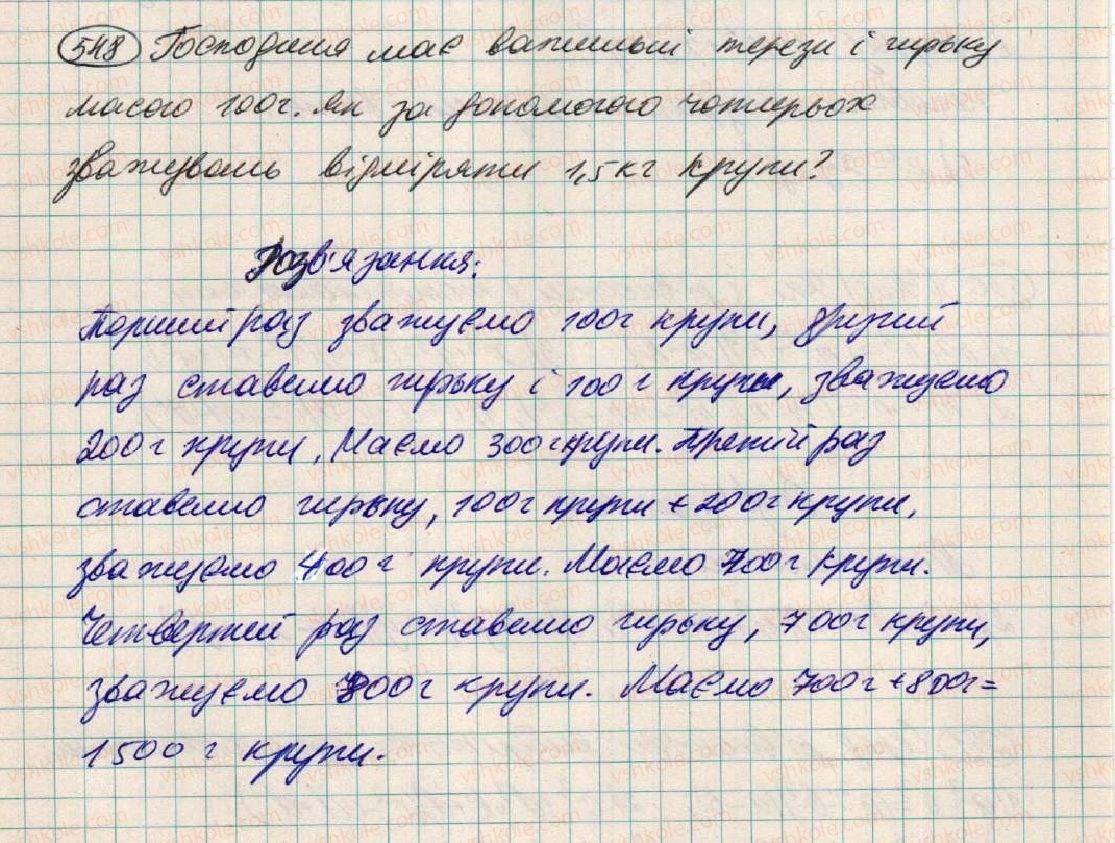 548 Господиня має важильні терези і гирьку
масою 100г. Як за допомогою чотирьох
зважувань відміряти 1,5 кг крупи?
Розв'язання:
Перший раз зважуємо 100г крупи, другий
раз ставимо гирьку і 100 г крупи, зважуємо
200г крупи, Маємо 300г крупи. Третій раз
ставимо гирьку, 100г крупи + 200г крупи,
зважуємо 400г крупи. Маємо 700г крупи.
Четвертий раз ставимо гирьку, 700г крупи,
зважуємо 800г крупи. Маємо 700г+800г=
1500 г крупи.